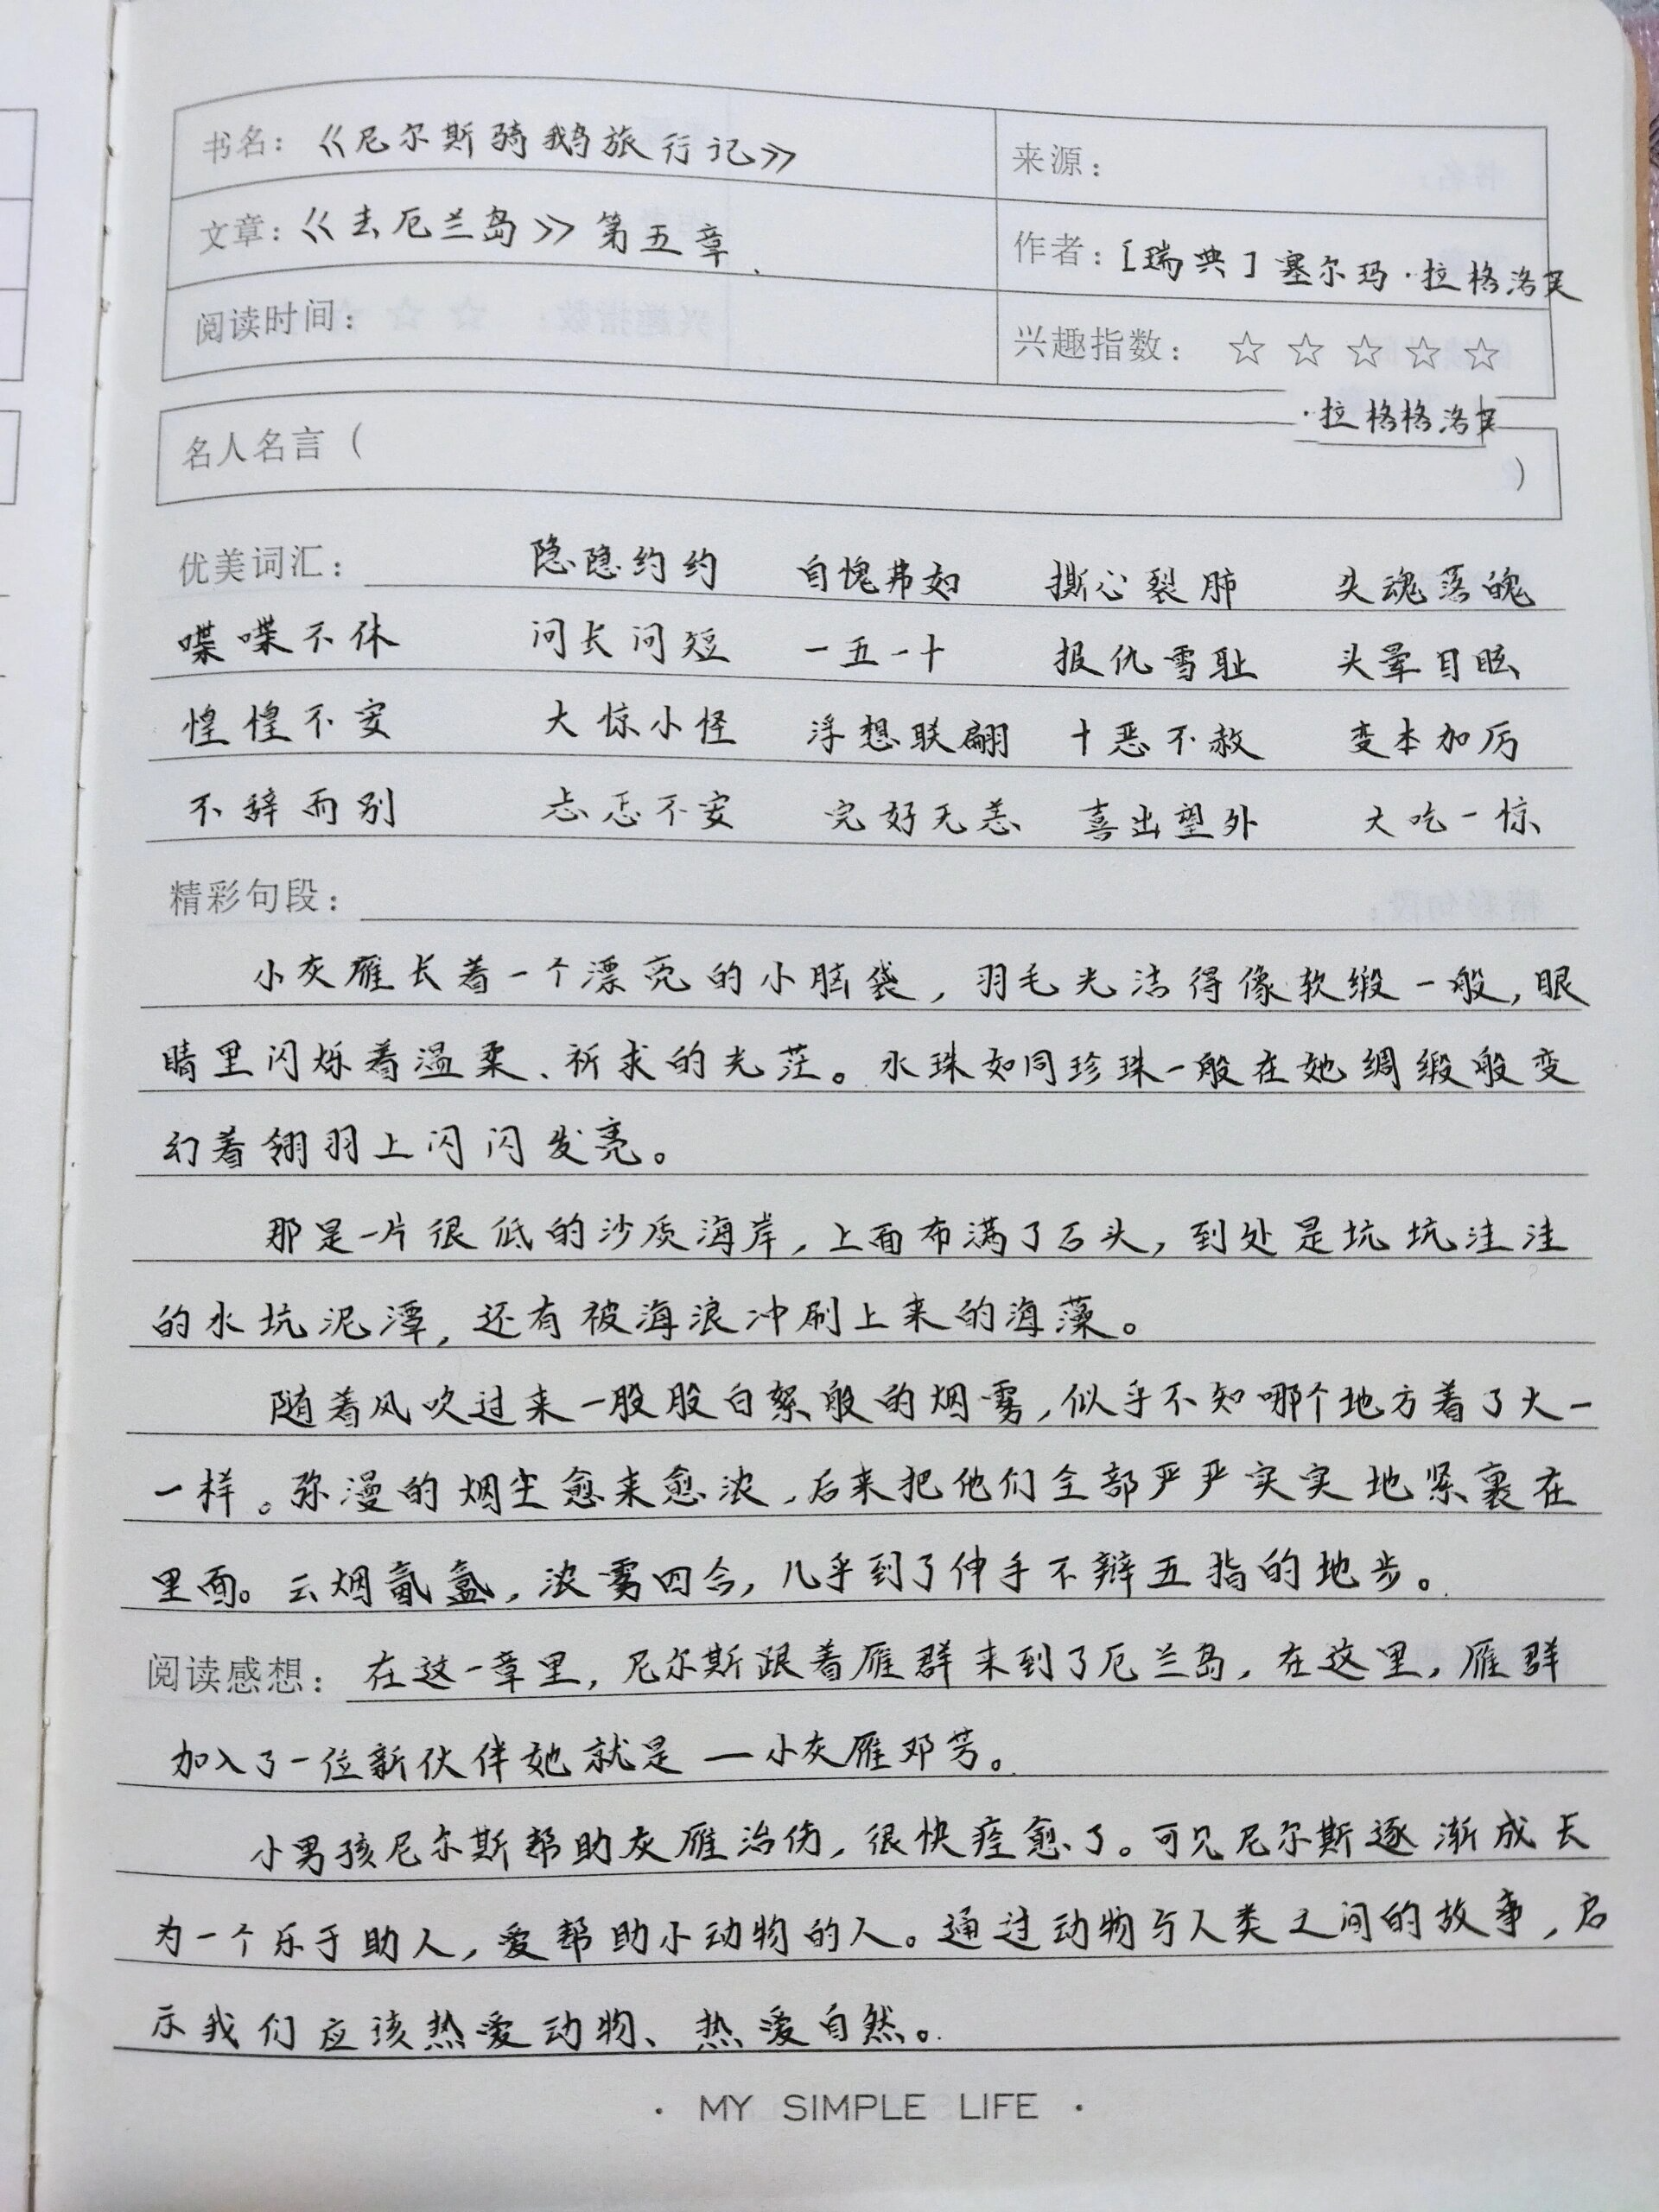 书名：《尼尔斯骑鹅旅行记》 来源：
文章：《去厄兰岛》第五章 作者：[瑞典]塞尔玛·拉格洛芙
阅读时间： 兴趣指数：☆☆☆☆☆
·拉格格洛芙
名人名言（ ）
优美词汇： 隐隐约约 自愧弗如 撕心裂肺 失魂落魄
喋喋不休 问长问短 一五一十 报仇雪耻 头晕目眩
惶惶不安 大惊小怪 浮想联翩 十恶不赦 变本加厉
不辞而别 忐忑不安 完好无恙 喜出望外 大吃一惊
精彩句段：
小灰雁长着一个漂亮的小脑袋，羽毛光洁得像软缎一般，眼
睛里闪烁着温柔、祈求的光茫。水珠如同珍珠一般在她绸缎般变
幻着翎羽上闪闪发亮。
那是一片很低的沙质海岸，上面布满了石头，到处是坑坑洼洼
的水坑泥潭，还有被海浪冲刷上来的海藻。
随着风吹过来一股股白絮般的烟雾，似乎不知哪个地方着了火一
一样。弥漫的烟尘愈来愈浓，后来把他们全部严严实实地紧裹在
里面。云烟氤氲，浓雾四合，几乎到了伸手不辨五指的地步。
阅读感想：在这一章里，尼尔斯跟着雁群来到了厄兰岛，在这里，雁群
加入了一位新伙伴她就是—小灰雁邓芬。
小男孩尼尔斯帮助灰雁治伤，很快痊愈了。可见尼尔斯逐渐成长
为一个乐于助人，爱帮助小动物的人。通过动物与人类之间的故事，启
示我们应该热爱动物、热爱自然。
· MY SIMPLE LIFE ·